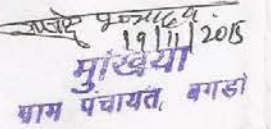 19/11/2015
मुखिया
ग्राम पंचायत, बगडो